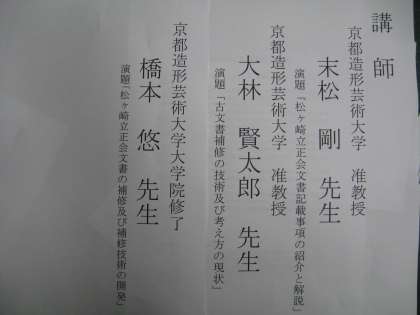 講師
京都造形芸術大学 准教授
末松 剛 先生
演題「松ヶ崎立正会文書記載事項の紹介と解説」
京都造形芸術大学 准教授
大林 賢太郎 先生
演題「古文書補修の技術及び考え方の現状」
京都造形芸術大学大学院修了
橋本 悠 先生
演題「松ヶ崎立正会文書の補修及び補修技術の開発」